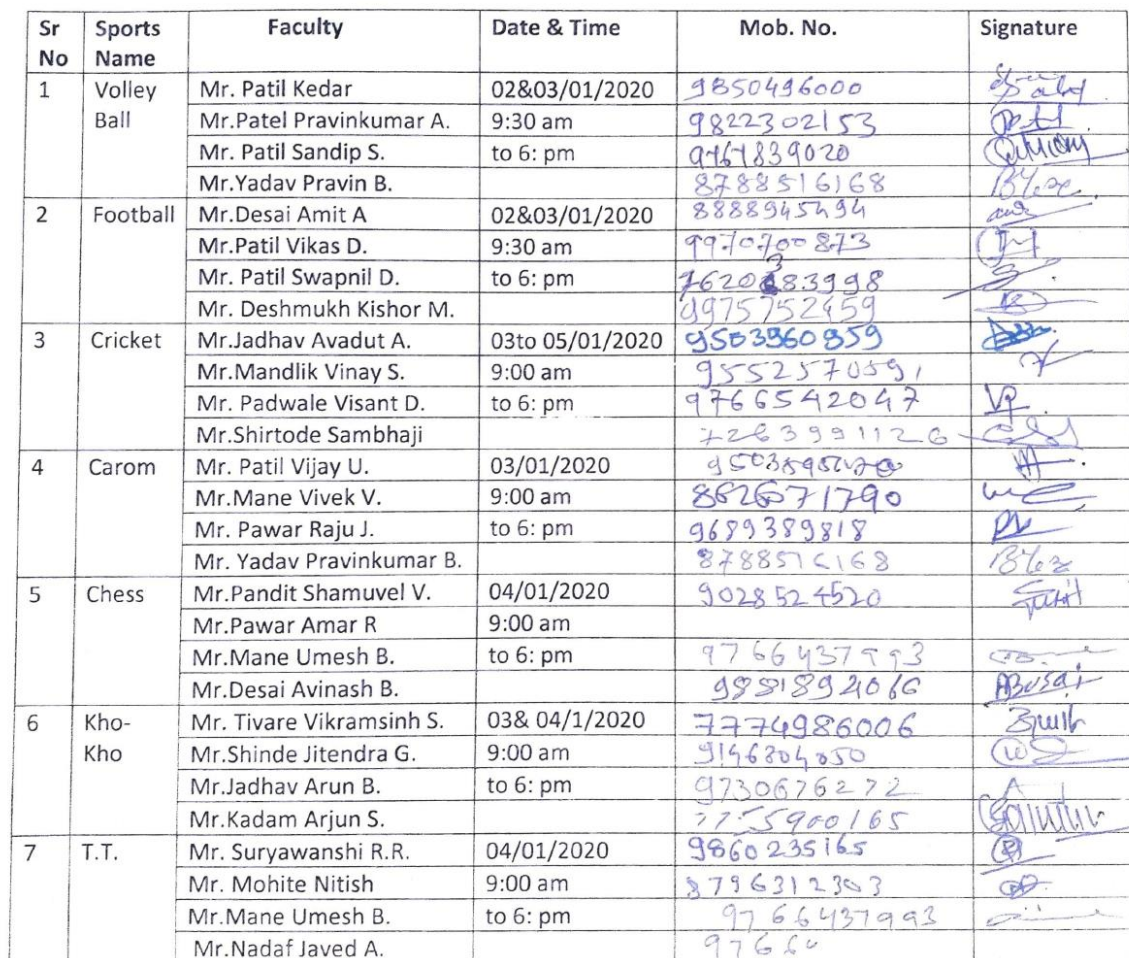 Sr No Sports Name Faculty Date & Time Mob. No. Signature
1 Volley Ball Mr. Patil Kedar 02&03/01/2020 9850496000
Mr.Patel Pravinkumar A. 9:30 am 9822302153
Mr. Patil Sandip S. to 6: pm 9767839020
Mr.Yadav Pravin B. 8788516168
2 Football Mr.Desai Amit A 02&03/01/2020 8888945494
Mr.Patil Vikas D. 9:30 am 9970700873
Mr. Patil Swapnil D. to 6: pm
Mr. Deshmukh Kishor M. 9975752459
3 Cricket Mr.Jadhav Avadut A. 03to 05/01/2020 9503960859
Mr.Mandlik Vinay S. 9:00 am 9552570591
Mr. Padwale Visant D. to 6: pm 9766542047
Mr.Shirtode Sambhaji 7263991126
4 Carom Mr. Patil Vijay U. 03/01/2020
Mr.Mane Vivek V. 9:00 am 8626071790
Mr. Pawar Raju J. to 6: pm 9689389818
Mr. Yadav Pravinkumar B. 8788516168
5 Chess Mr.Pandit Shamuvel V. 04/01/2020 9028524520
Mr.Pawar Amar R 9:00 am
Mr.Mane Umesh B. to 6: pm 9766437993
Mr.Desai Avinash B. 9881894066
6 Kho-Kho Mr. Tivare Vikramsinh S. 03& 04/1/2020 7774986006
Mr.Shinde Jitendra G. 9:00 am 9146804050
Mr.Jadhav Arun B. to 6: pm 9730676272
Mr.Kadam Arjun S.
7 T.T. Mr. Suryawanshi R.R. 04/01/2020 9860235165
Mr. Mohite Nitish 9:00 am 8796312303
Mr.Mane Umesh B. to 6: pm 9766437993
Mr.Nadaf Javed A.